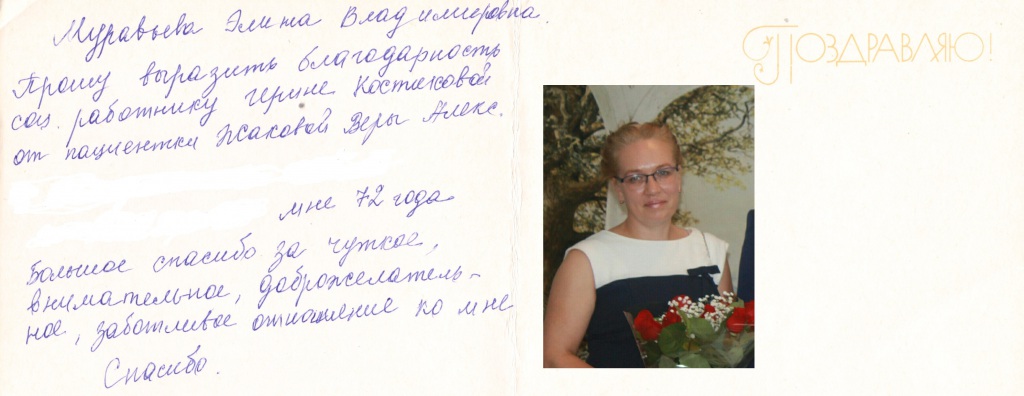 Муравьева Элина Владимировна.
Прошу выразить благодарность
соц. работнику Костиковой
от пациентки Жаковой Веры Алекс.
мне 72 года
Большое спасибо за чуткое,
внимательное, доброжелатель-
ное, заботливое отношение ко мне
Спасибо.
Поздравляю!